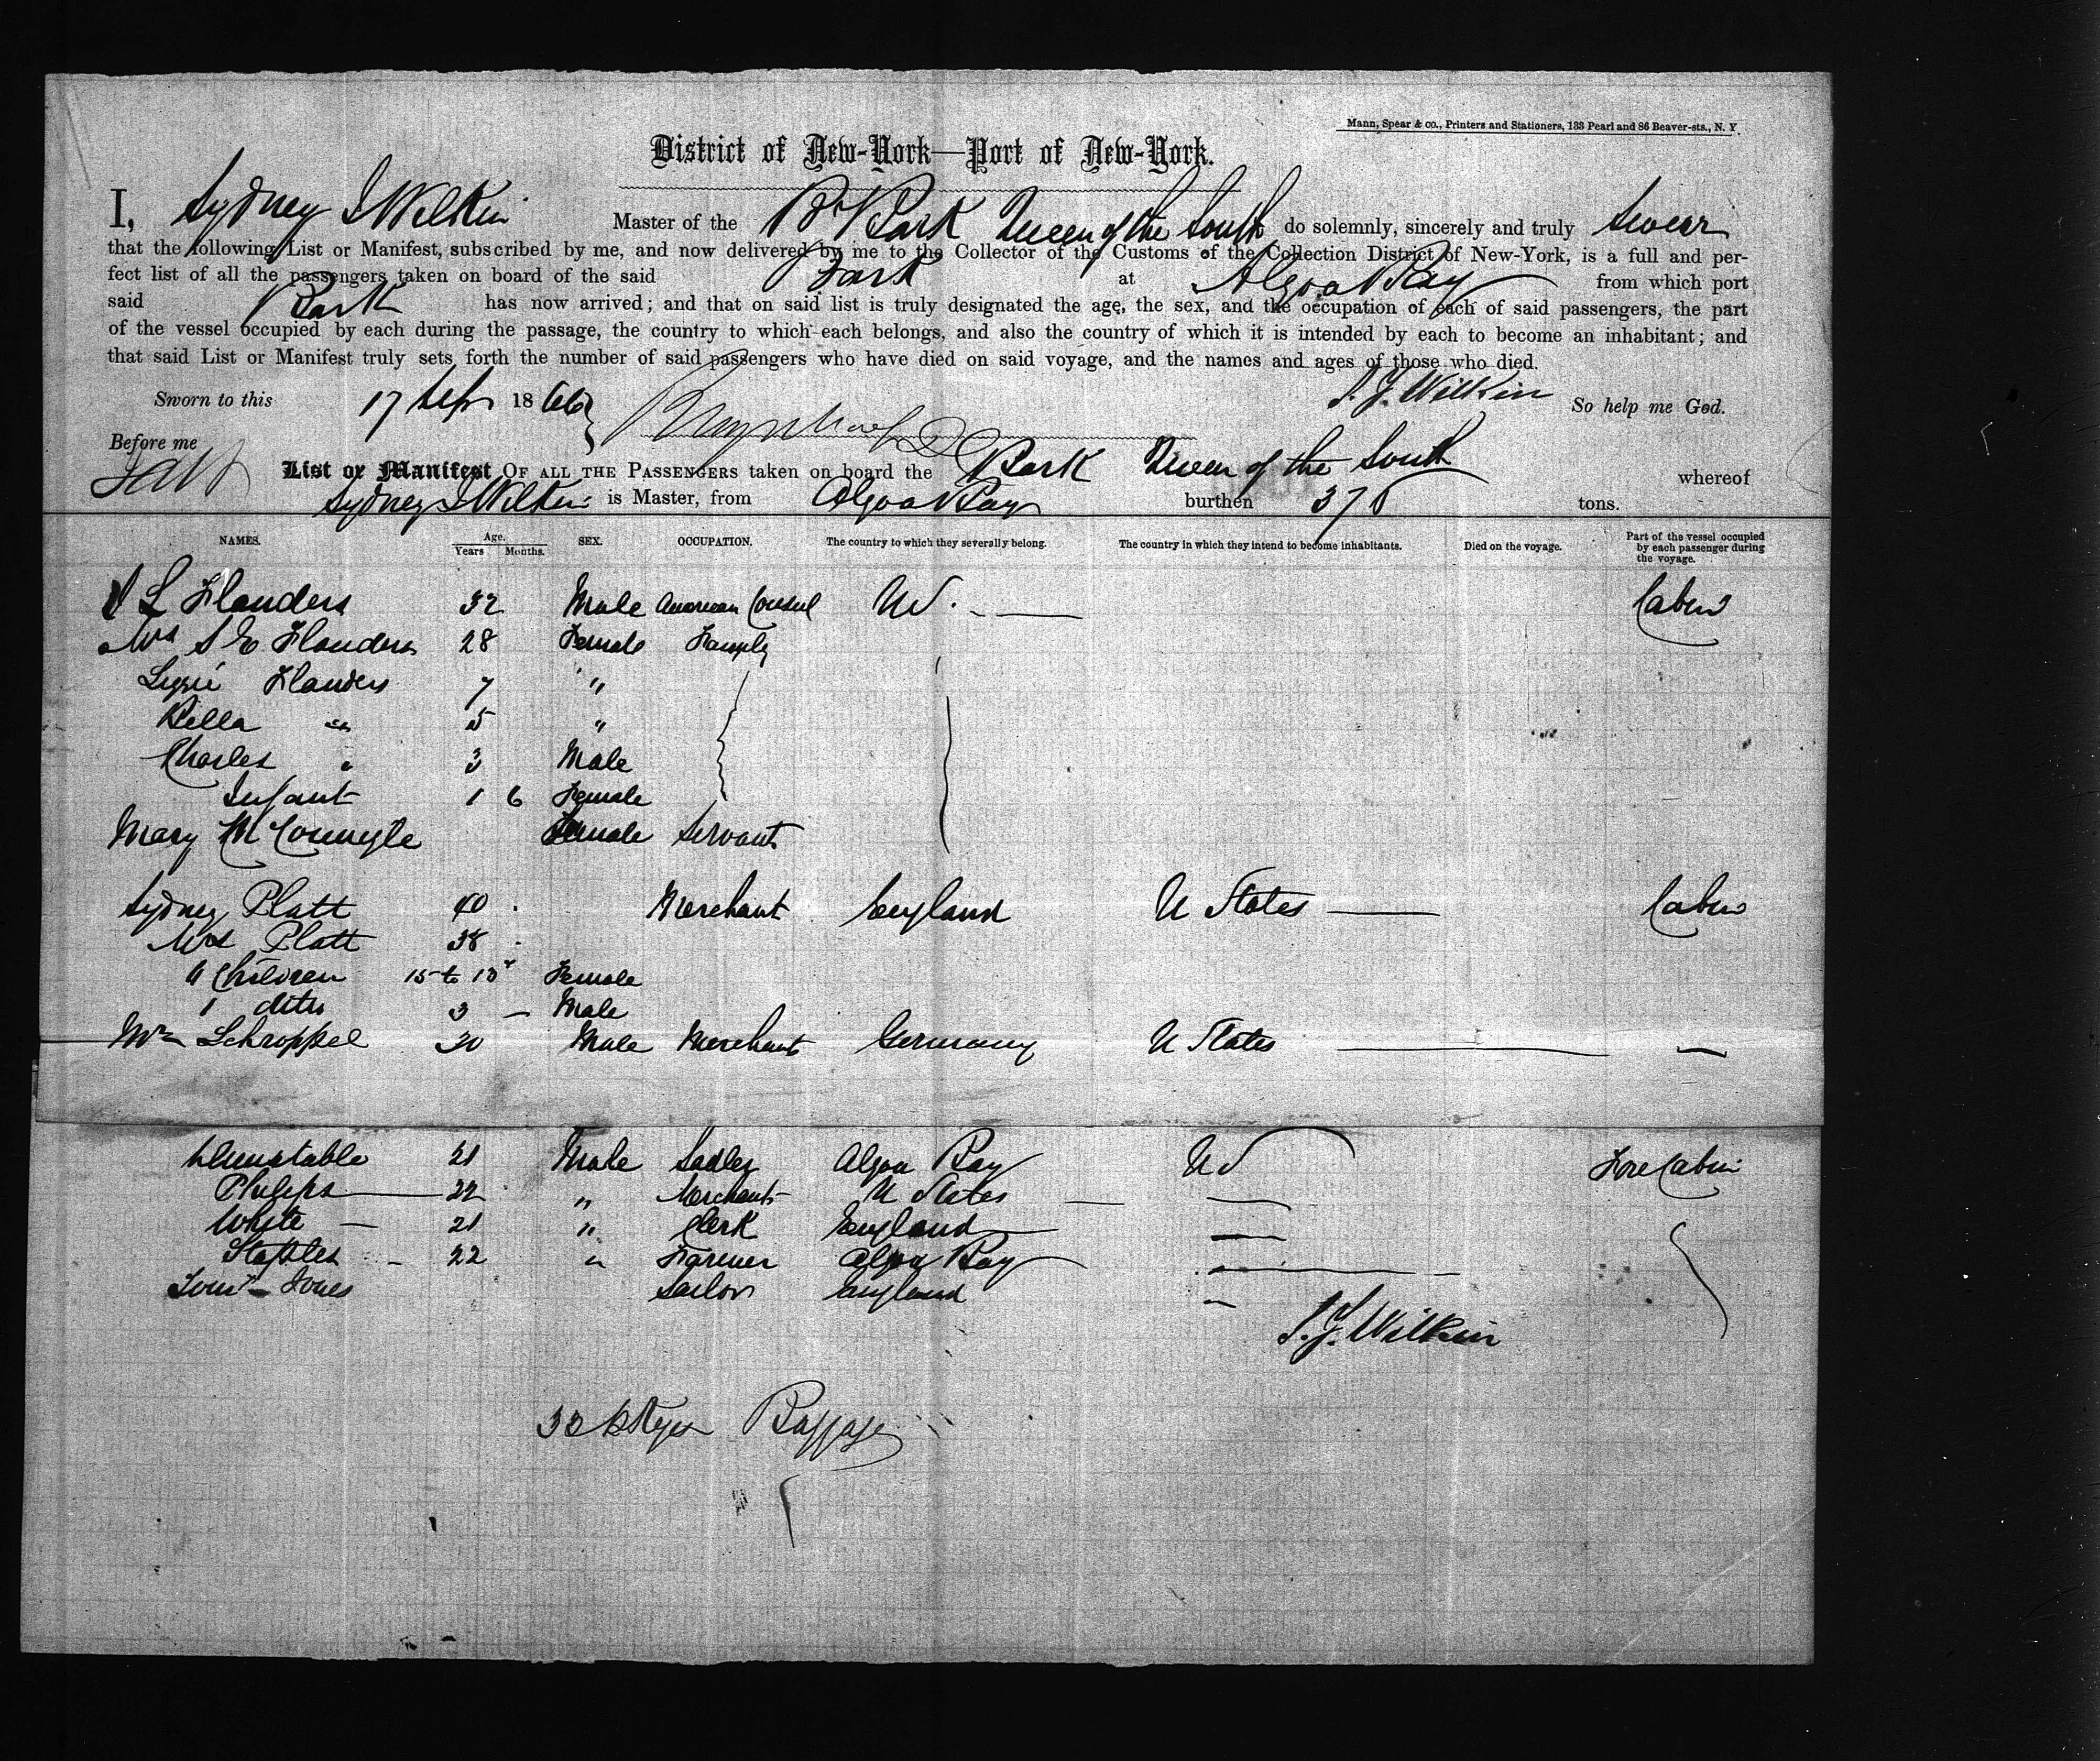 Mann, Spear & co., Printers and Stationers, 133 Pearl and 86 Beaver-sts., N. Y.
District of New-York—Port of New-York.
I, Sydney J Wilkin Master of the Br Bark Queen of the South do solemnly, sincerely and truly swear
that the following List or Manifest, subscribed by me, and now delivered by me to the Collector of the Customs of the Collection District of New-York, is a full and per-
fect list of all the passengers taken on board of the said Bark at Algoa Bay from which port
said Bark has now arrived; and that on said list is truly designated the age, the sex, and the occupation of each of said passengers, the part
of the vessel occupied by each during the passage, the country to which each belongs, and also the country of which it is intended by each to become an inhabitant; and
that said List or Manifest truly sets forth the number of said passengers who have died on said voyage, and the names and ages of those who died.
Sworn to this 17 Sep 1866 S. J. Wilkin So help me God.
Before me
List or Manifest OF ALL THE PASSENGERS taken on board the Bark Queen of the South whereof
Sydney J Wilkin is Master, from Algoa Bay burthen 376 tons.
NAMES. Age. Years Months. SEX. OCCUPATION. The country to which they severally belong. The country in which they intend to become inhabitants. Died on the voyage. Part of the vessel occupied by each passenger during the voyage.
L Flanders 32 Male American Consul US. Cabin
Mrs S E Flanders 28 Female Family
Lizzie Flanders 7 "
Bella " 5 "
Charles " 3 Male
Infant 1 6 Female
Mary Female Servant
Sydney Platt 40 Merchant England U States Cabin
Mrs Platt 38
Children 15 to Female
1 ditto 3 — Male
Wm Schroppel 30 Male Merchant Germany U States —
Dunstable 21 Male Sadler Algoa Bay US Fore Cabin
Phelps 22 " Merchant U States —
White — 21 " Clerk England —
Staples - 22 " Farmer Algoa Bay —
Jones Sailor England —
S. J. Wilkin
33 pkges Baggage